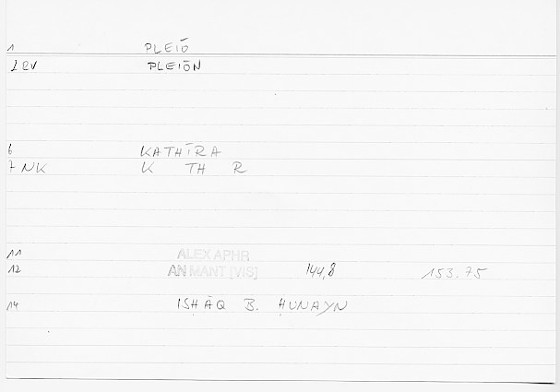 1 PLEIŌ
2 EV PLEIŌN
6 KATHĪRA
7 NK K TH R
11 ALEX APHR
12 AN MANT [VIS] 144,8 153.75
14 ISḤĀQ B. ḤUNAYN